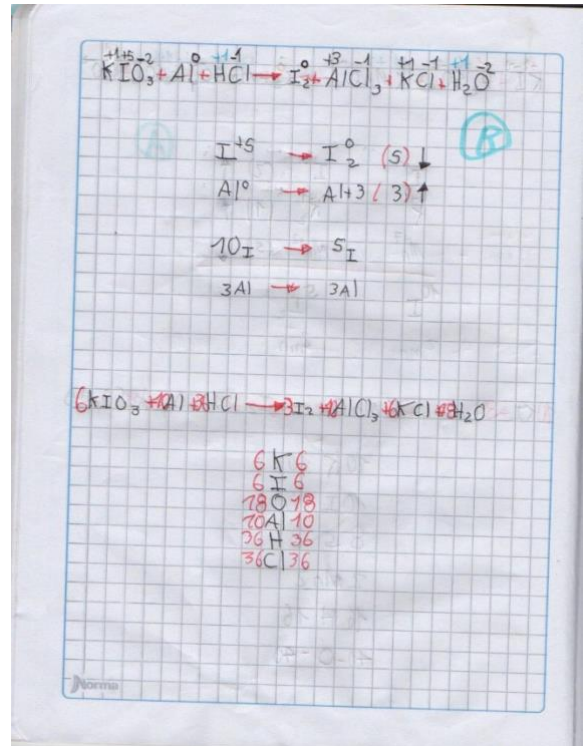 +1+5-2 0 +1-1 0 +3 -1 +1 -1 +1 -2
KIO3+Al+HCl→I2+AlCl3+KCl+H2O
B
I+5 → I2 0 (5)↓
Al0 → Al+3 (3)↑
10I → 5I
3Al → 3Al
6KIO3 +10Al +36HCl → 3I2 +10AlCl3 +6KCl +18H2O
6 K 6
6 I 6
18 O 18
10 Al 10
36 H 36
36 Cl 36
Norma